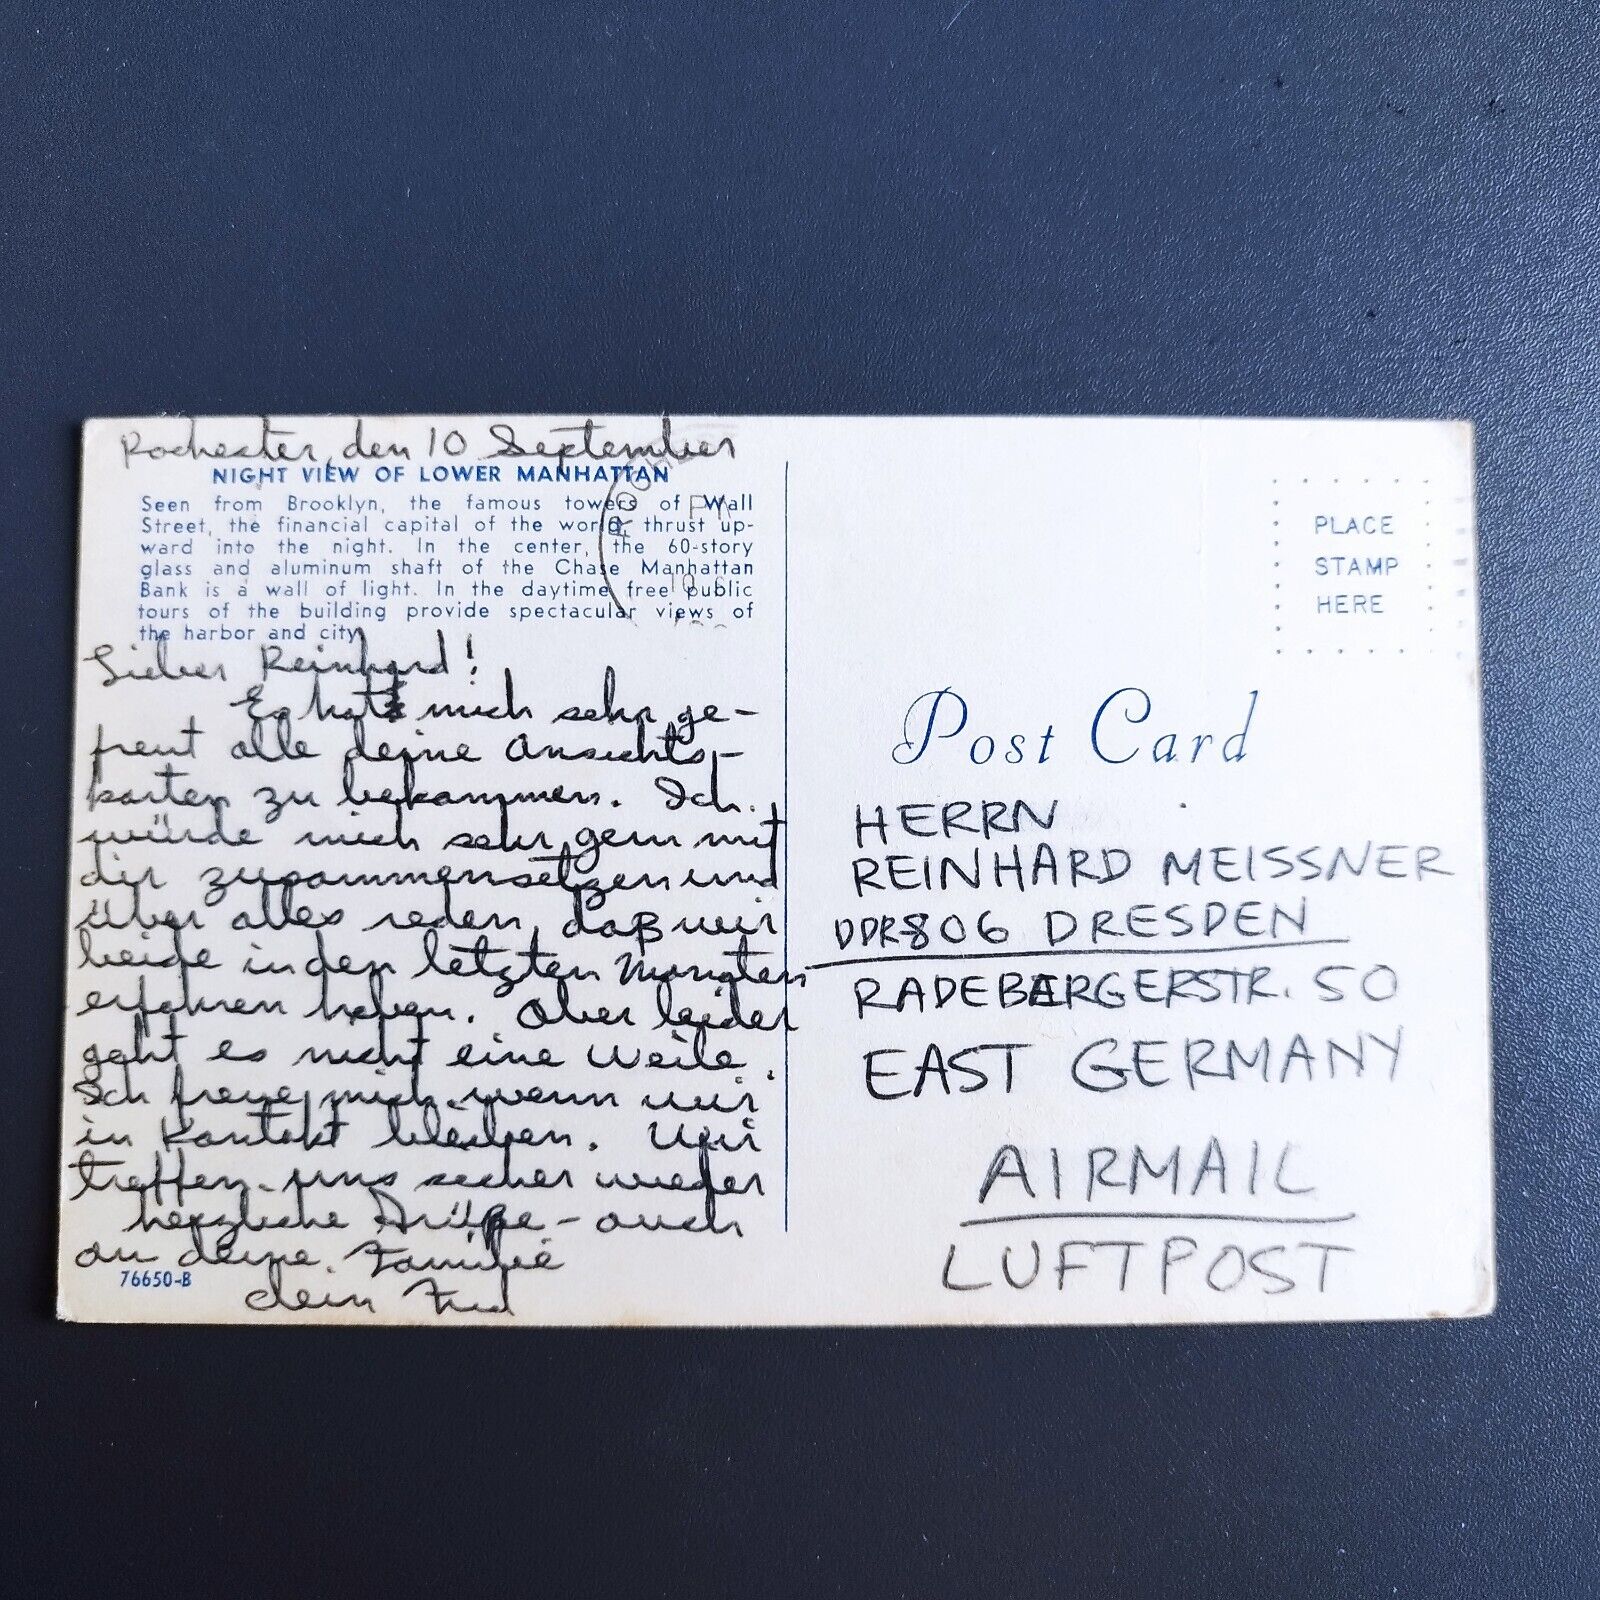 Rochester, den 10 September
NIGHT VIEW OF LOWER MANHATTAN
Seen from Brooklyn, the famous towers of Wall
Street, the financial capital of the world, thrust up-
ward into the night. In the center, the 60-story
glass and aluminum shaft of the Chase Manhattan
Bank is a wall of light. In the daytime free public
tours of the building provide spectacular views of
the harbor and city.
Lieber Reinhard!
Es hat mich sehr ge-
freut alle deine Ansichts-
karten zu bekommen. Ich
würde mich sehr gern mit
dir zusammensetzen und
über alles reden, daß wir
beide in den letzten Monaten
erfahren haben. Aber leider
geht es nicht eine Weile.
Ich freue mich wenn wir
in Kontakt bleiben. Wir
treffen uns sicher wieder
herzliche Grüße - auch
an deine Familie
dein Fred
76650-B
PLACE
STAMP
HERE
Post Card
HERRN
REINHARD MEISSNER
DDR-806 DRESDEN
RADEBERGERSTR. 50
EAST GERMANY
AIRMAIL
LUFTPOST